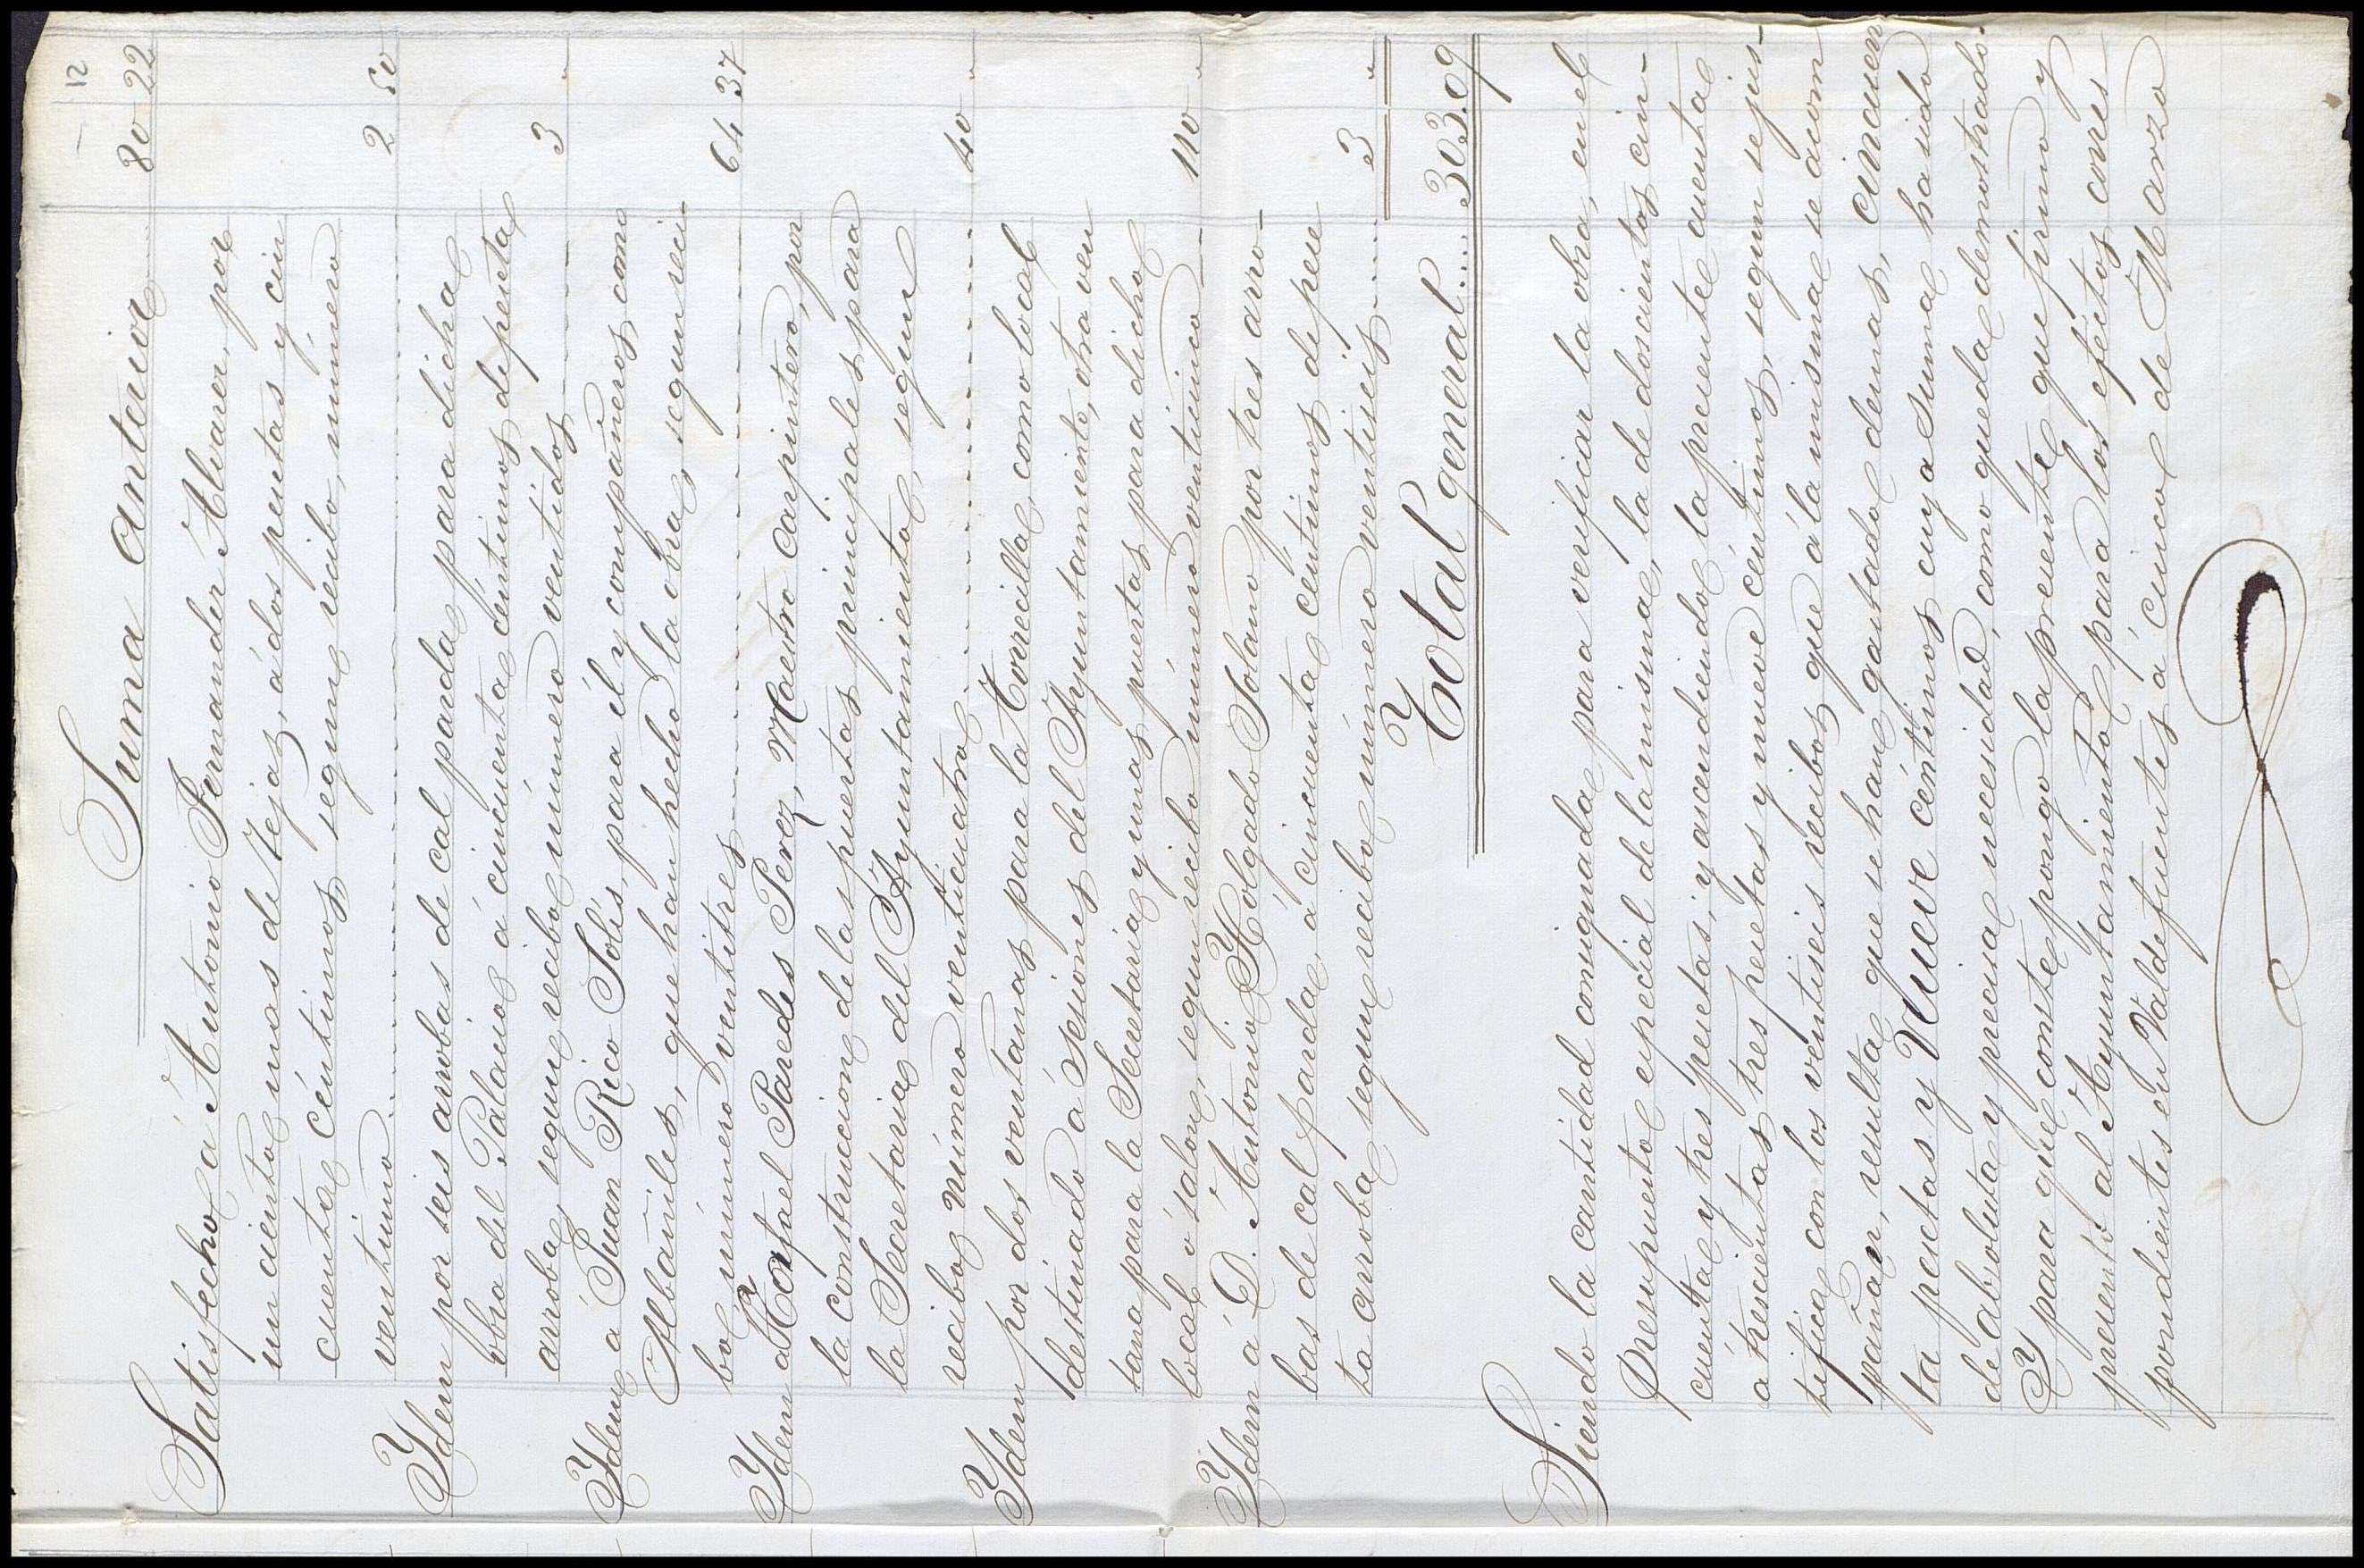 12
Suma anterior 80 22
Satisfecho á Antonio Fernander Alvarer, por
un ciento mas de tejas, á dos pesetas y cin
cuenta céntimos segun recibo, número
ventiuno 2 50
Ydem por seis arrobas de cal parda para dicha
obra del Palacio á cincuenta céntimos de peseta
arroba, segun recibo número ventidos 3 "
Ydem a Juan Rico Solís, para él y compañeros como
Albañiles, que han hecho la obra, segun reci-
bo número ventitres 64 37
Ydem a Rafael Paredes Perez, Maestro carpintero, por
la construccion de las puertas principales para
la Secretaria del Ayuntamiento, segun
recibo número venticuatro 40 "
Ydem por dos ventanas para la Torrecilla, como local
destinado a sesiones del Ayuntamiento, otra ven
tana para la Secretaria y unas puertas para dicho
local o salon, segun recibo número venticinco 110 "
Ydem a D. Antonio Holgado Solano por tres arro-
bas de cal parda, a cincuenta céntimos de pese
ta arroba segun recibo número ventiseis 3 "
Total general... 303.09
Siendo la cantidad consignada para verificar la obra, en el
Presupuesto especial de la misma, la de doscientos cin-
cuenta y tres pesetas, y ascendiendo la presente cuenta
a trescientas tres pesetas y nueve céntimos, segun se jus-
tifica con los ventiseis recibos que á la misma se acom
pañan, resulta que se han gastado demas, cincuen
ta pesetas y Nueve céntimos cuya suma ha sido
de absoluta y precisa necesidad, como queda demostrado.
Y para que conste pongo la presente que firmo y
presento al Ayuntamiento para los efectos corres-
pondientes en Valdefuentes á cinco de Marzo